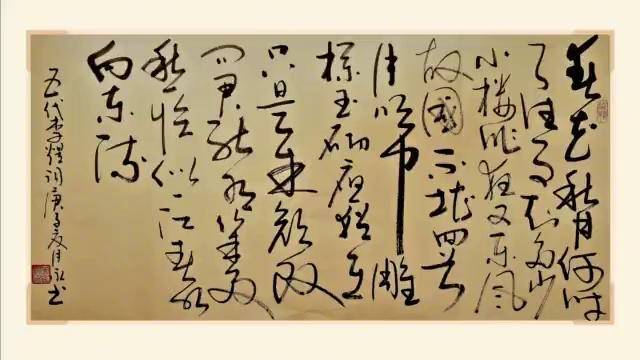 春花秋月何时
了往事知多少
小楼昨夜又东风
故國不堪回首
月明中雕
栏玉砌应犹在
只是朱颜改
问君能有几多
愁恰似江春水
向东流
五代李煜词庚子夏月书